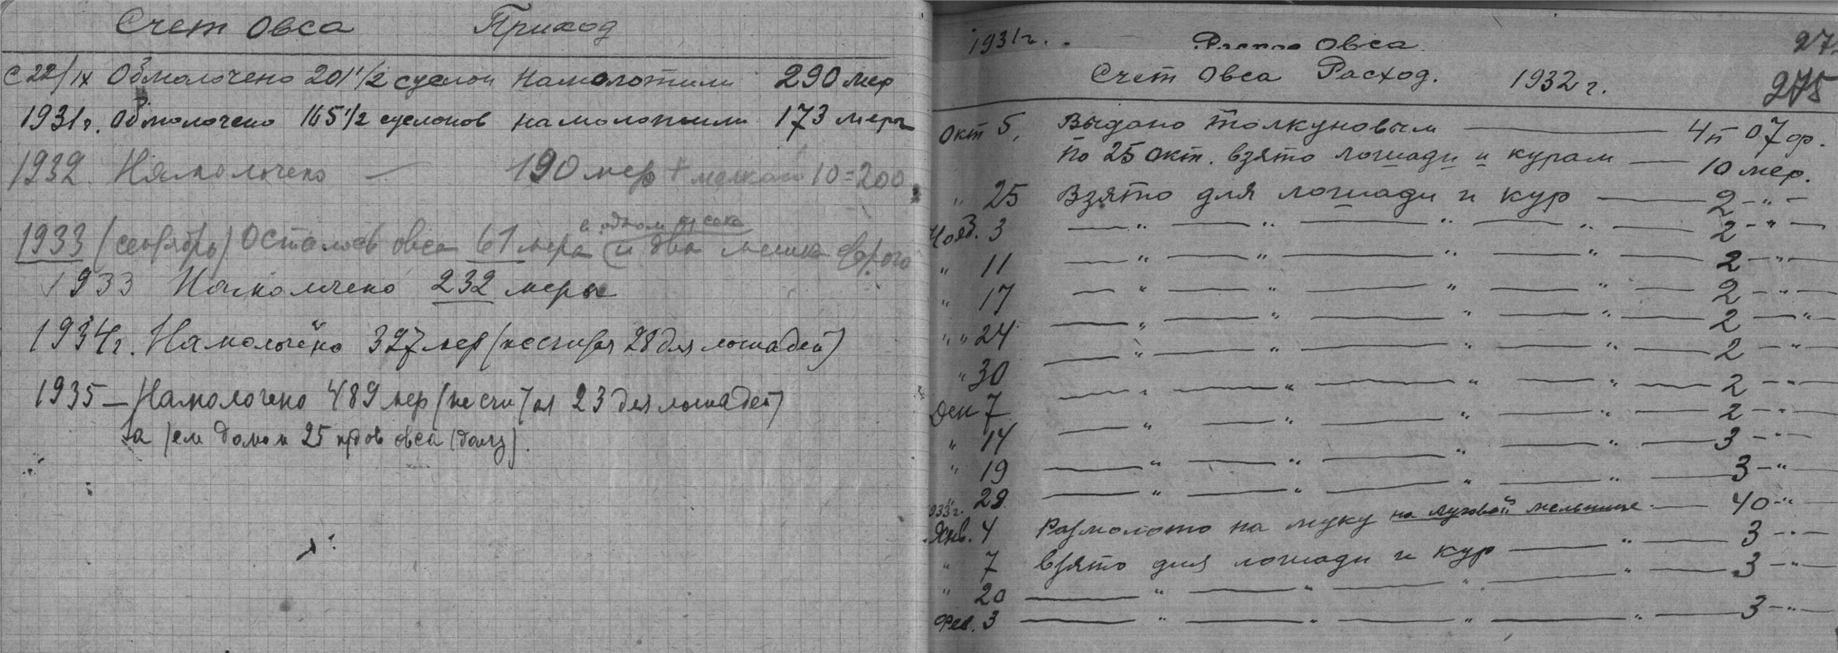 Счет Овса Приход
с 22/IX Обмолочено 201 1/2 суслон намолотили 290 мер
1931г. Обмолочено 165 1/2 суслонов намолотили 173 меры
1932. Намолочено — 190 мер + мелкой 10 = 200
в одном
1933 (сентябрь) Осталось овса 61 мера и два мешка
1933 Намолочено 232 меры
1934г. Намолочено 327 мер (не считая 28 для лошадей)
1935 — Намолочено 489 мер (не считая 23 для лошадей)
25 пудов овса (долг).
1931г. Овса. 27
Счет Овса Расход. 1932 г. 275
Окт 5, Выдано Толкуновым — 4п 07ф.
по 25 окт. взято лошади и курам — 10 мер.
" 25 Взято для лошади и кур — 2 -"-
Нояб. 3 — " — " — " — " — 2 -"-
" 11 — " — " — " — " — 2 -"-
" 17 — " — " — " — " — 2 -"-
" " 24 — " — " — " — " — 2 -"-
" 30 — " — " — " — " — 2 -"-
Дек 7 — " — " — " — " — 2 -"-
" 14 — " — " — " — " — 2 -"-
" 19 — " — " — " — " — 3 -"-
" 29 — " — " — " — " — 3 -"-
933г.
Янв. 4 Размолото на муку на луговой мельнице — 40 -"-
" 7 взято для лошади и кур — " — 3 -"-
" 20 — " — " — " — " — 3 -"-
Фев. 3 — " — " — " — " — 3 -"-